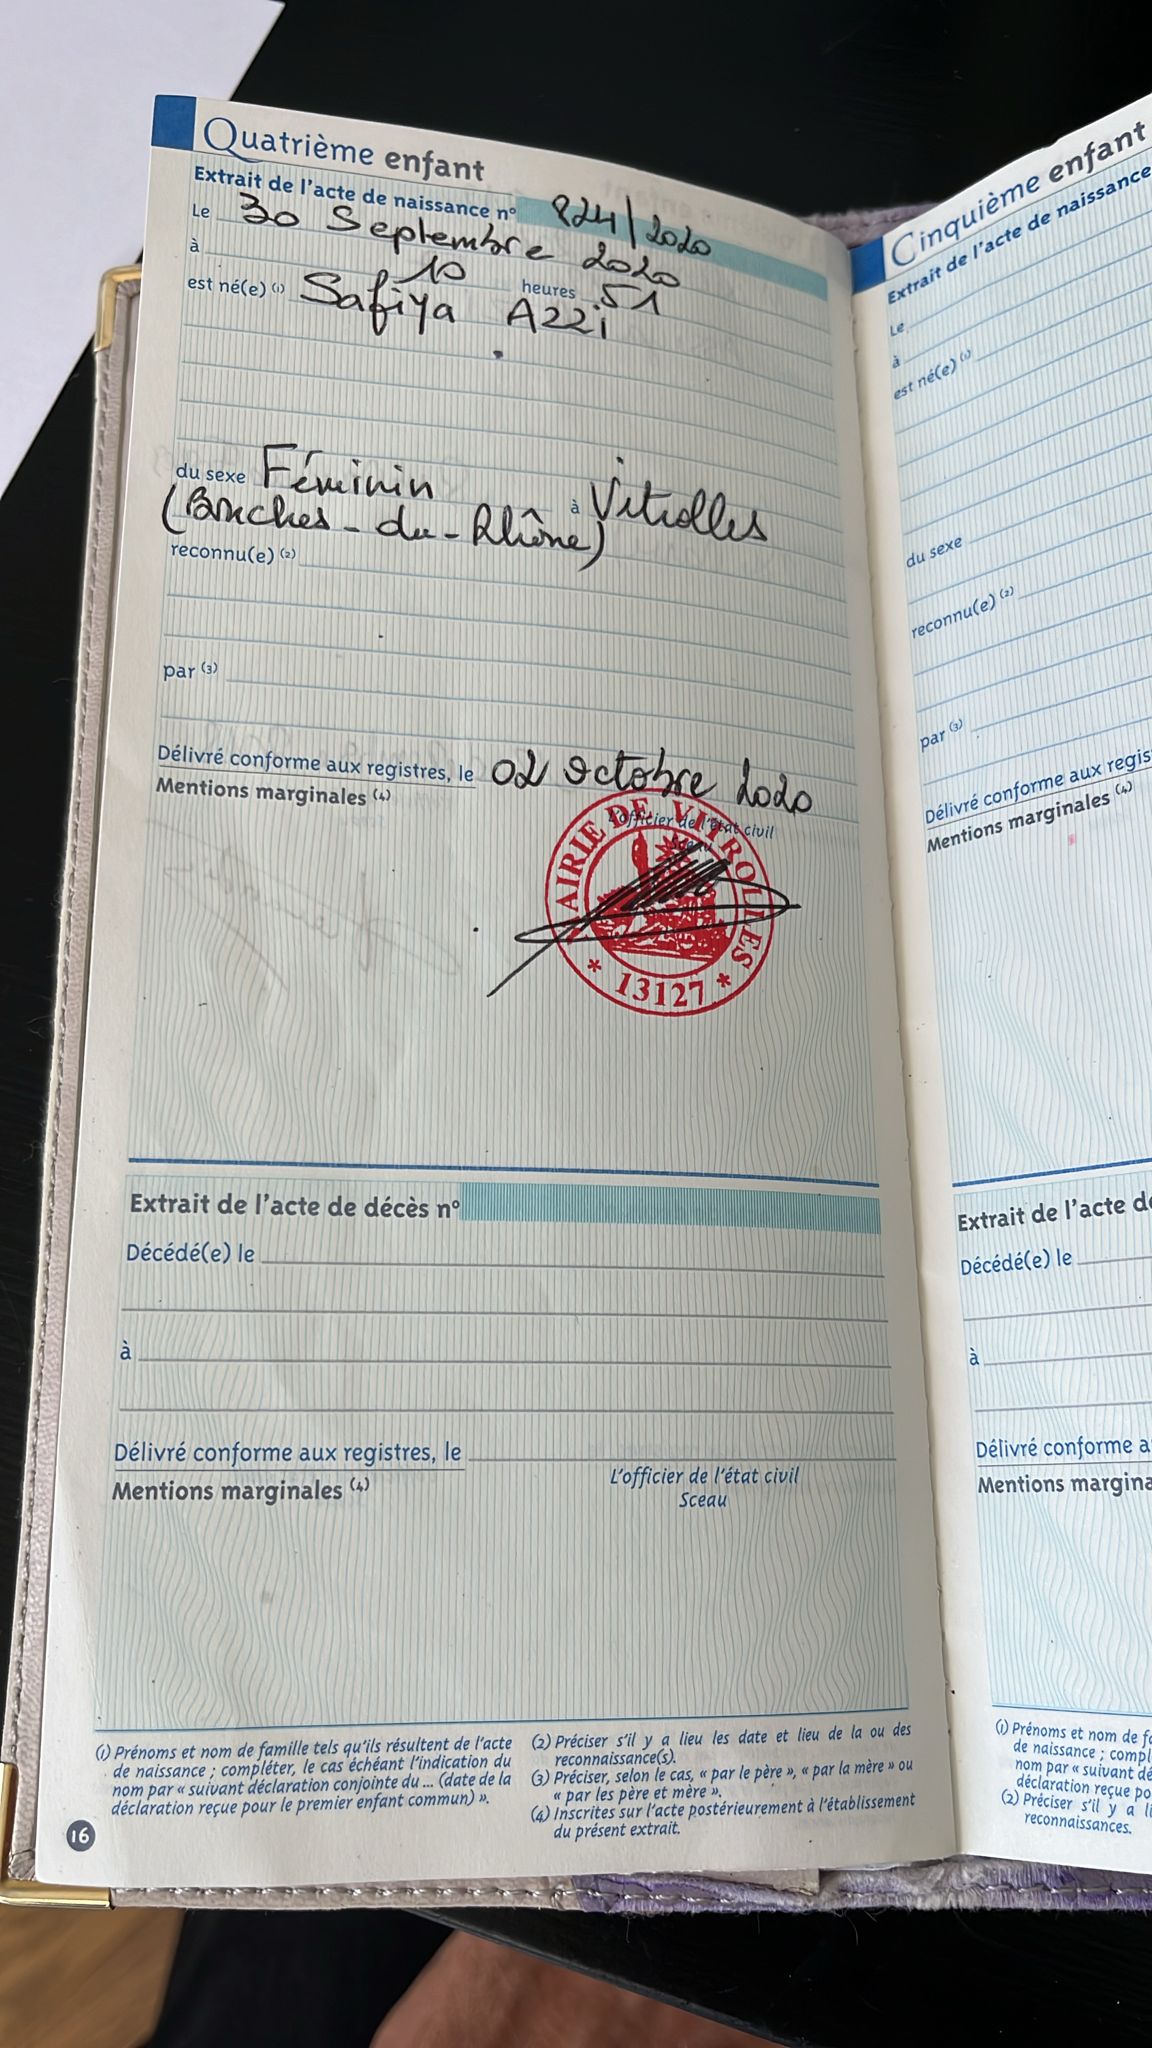 Quatrième enfant
Extrait de l'acte de naissance nº 824/2020
Le 30 Septembre 2020
à 10 heures 51
est né(e) (1) Safiya Azzi
du sexe Féminin à Vitrolles
(Bouches-du-Rhône)
reconnu(e) (2)
par (3)
Délivré conforme aux registres, le 02 Octobre 2020
Mentions marginales (4)
L'officier de l'état civil
Sceau
MAIRIE DE VITROLLES
* 13127 *
Extrait de l'acte de décès nº
Décédé(e) le
à
Délivré conforme aux registres, le
Mentions marginales (4)
L'officier de l'état civil
Sceau
(1) Prénoms et nom de famille tels qu'ils résultent de l'acte
de naissance ; compléter, le cas échéant l'indication du
nom par « suivant déclaration conjointe du ... (date de la
déclaration reçue pour le premier enfant commun) ».
(2) Préciser s'il y a lieu les date et lieu de la ou des
reconnaissance(s).
(3) Préciser, selon le cas, « par le père », « par la mère » ou
« par les père et mère ».
(4) Inscrites sur l'acte postérieurement à l'établissement
du présent extrait.
16
Cinquième enfant
Extrait de l'acte de naissance
Le
à
est né(e) (1)
du sexe
reconnu(e) (2)
par (3)
Délivré conforme aux regis
Mentions marginales (4)
Extrait de l'acte de
Décédé(e) le
à
Délivré conforme a
Mentions margina
(1) Prénoms et nom de fa
de naissance ; compl
nom par « suivant dé
déclaration reçue po
(2) Préciser s'il y a li
reconnaissances.